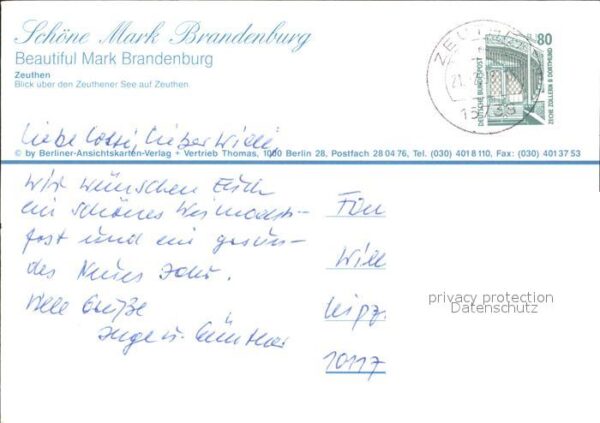 Schöne Mark Brandenburg
Beautiful Mark Brandenburg
Zeuthen
Blick über den Zeuthener See auf Zeuthen
80
DEUTSCHE BUNDESPOST
ZECHE ZOLLERN II DORTMUND
ZEUTHEN
15738
Liebe Lotti, lieber Willi,
© by Berliner-Ansichtskarten-Verlag + Vertrieb Thomas, 1000 Berlin 28, Postfach 28 04 76, Tel. (030) 401 8 110, Fax: (030) 401 37 53
Wir wünschen Euch
ein schönes Weihnachts-
fest und ein gesun-
des Neues Jahr.
Viele Grüße
Inge u. Günther
Willi
Leipz.
10117
privacy protection
Datenschutz